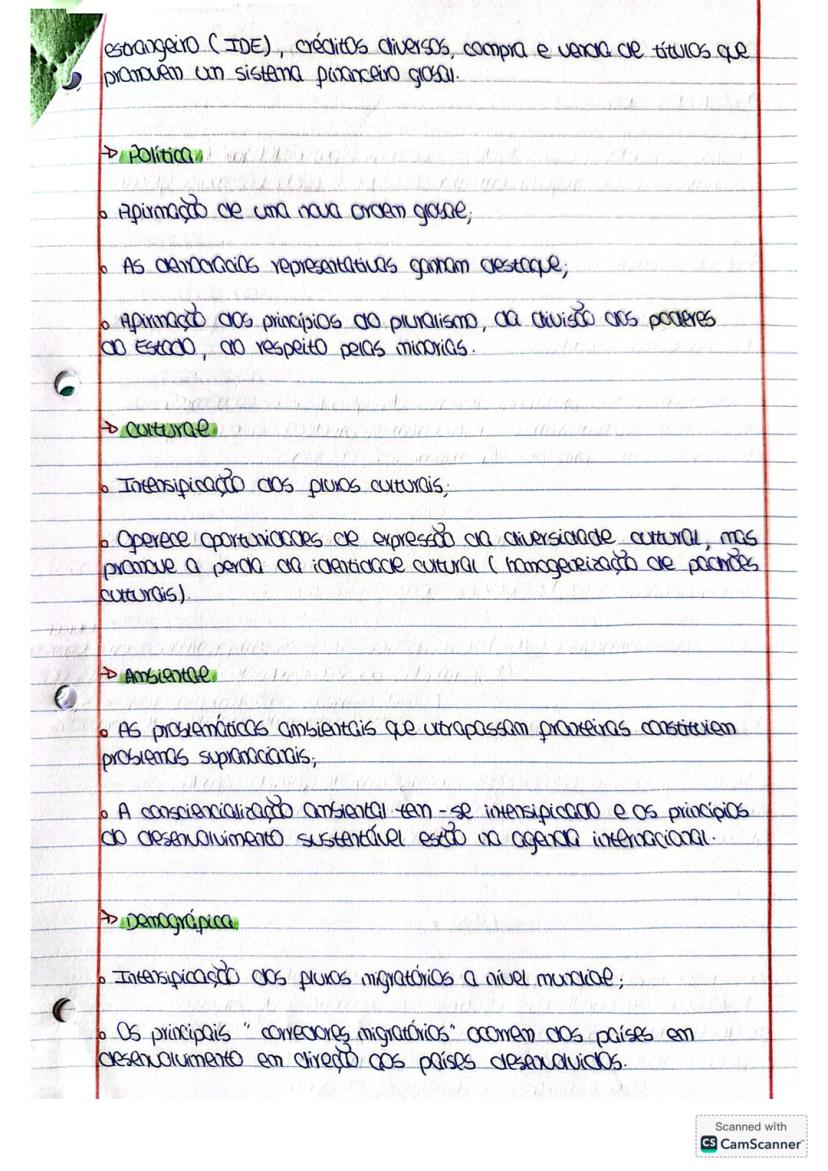 estrangeiro (IDE), créditos diversos, compra e venda de títulos que
promovem um sistema financeiro global.
→ Política
Afirmação de uma nova ordem global;
As democracias representativas ganham destaque;
Afirmação dos princípios do pluralismo, da divisão dos poderes
do Estado, do respeito pelas minorias.
→ Cultural
Intensificação dos fluxos culturais;
Oferece oportunidades de expressão da diversidade cultural, mas
promove a perda da identidade cultural (homogeneização de padrões
culturais).
→ Ambiental
As problemáticas ambientais que ultrapassam fronteiras constituem
problemas supranacionais;
A consciencialização ambiental tem-se intensificado e os princípios
do desenvolvimento sustentável estão na agenda internacional.
→ Demográfica
Intensificação dos fluxos migratórios a nível mundial;
Os principais "corredores migratórios" ocorrem dos países em
desenvolvimento em direção aos países desenvolvidos.
Scanned with
CS CamScanner